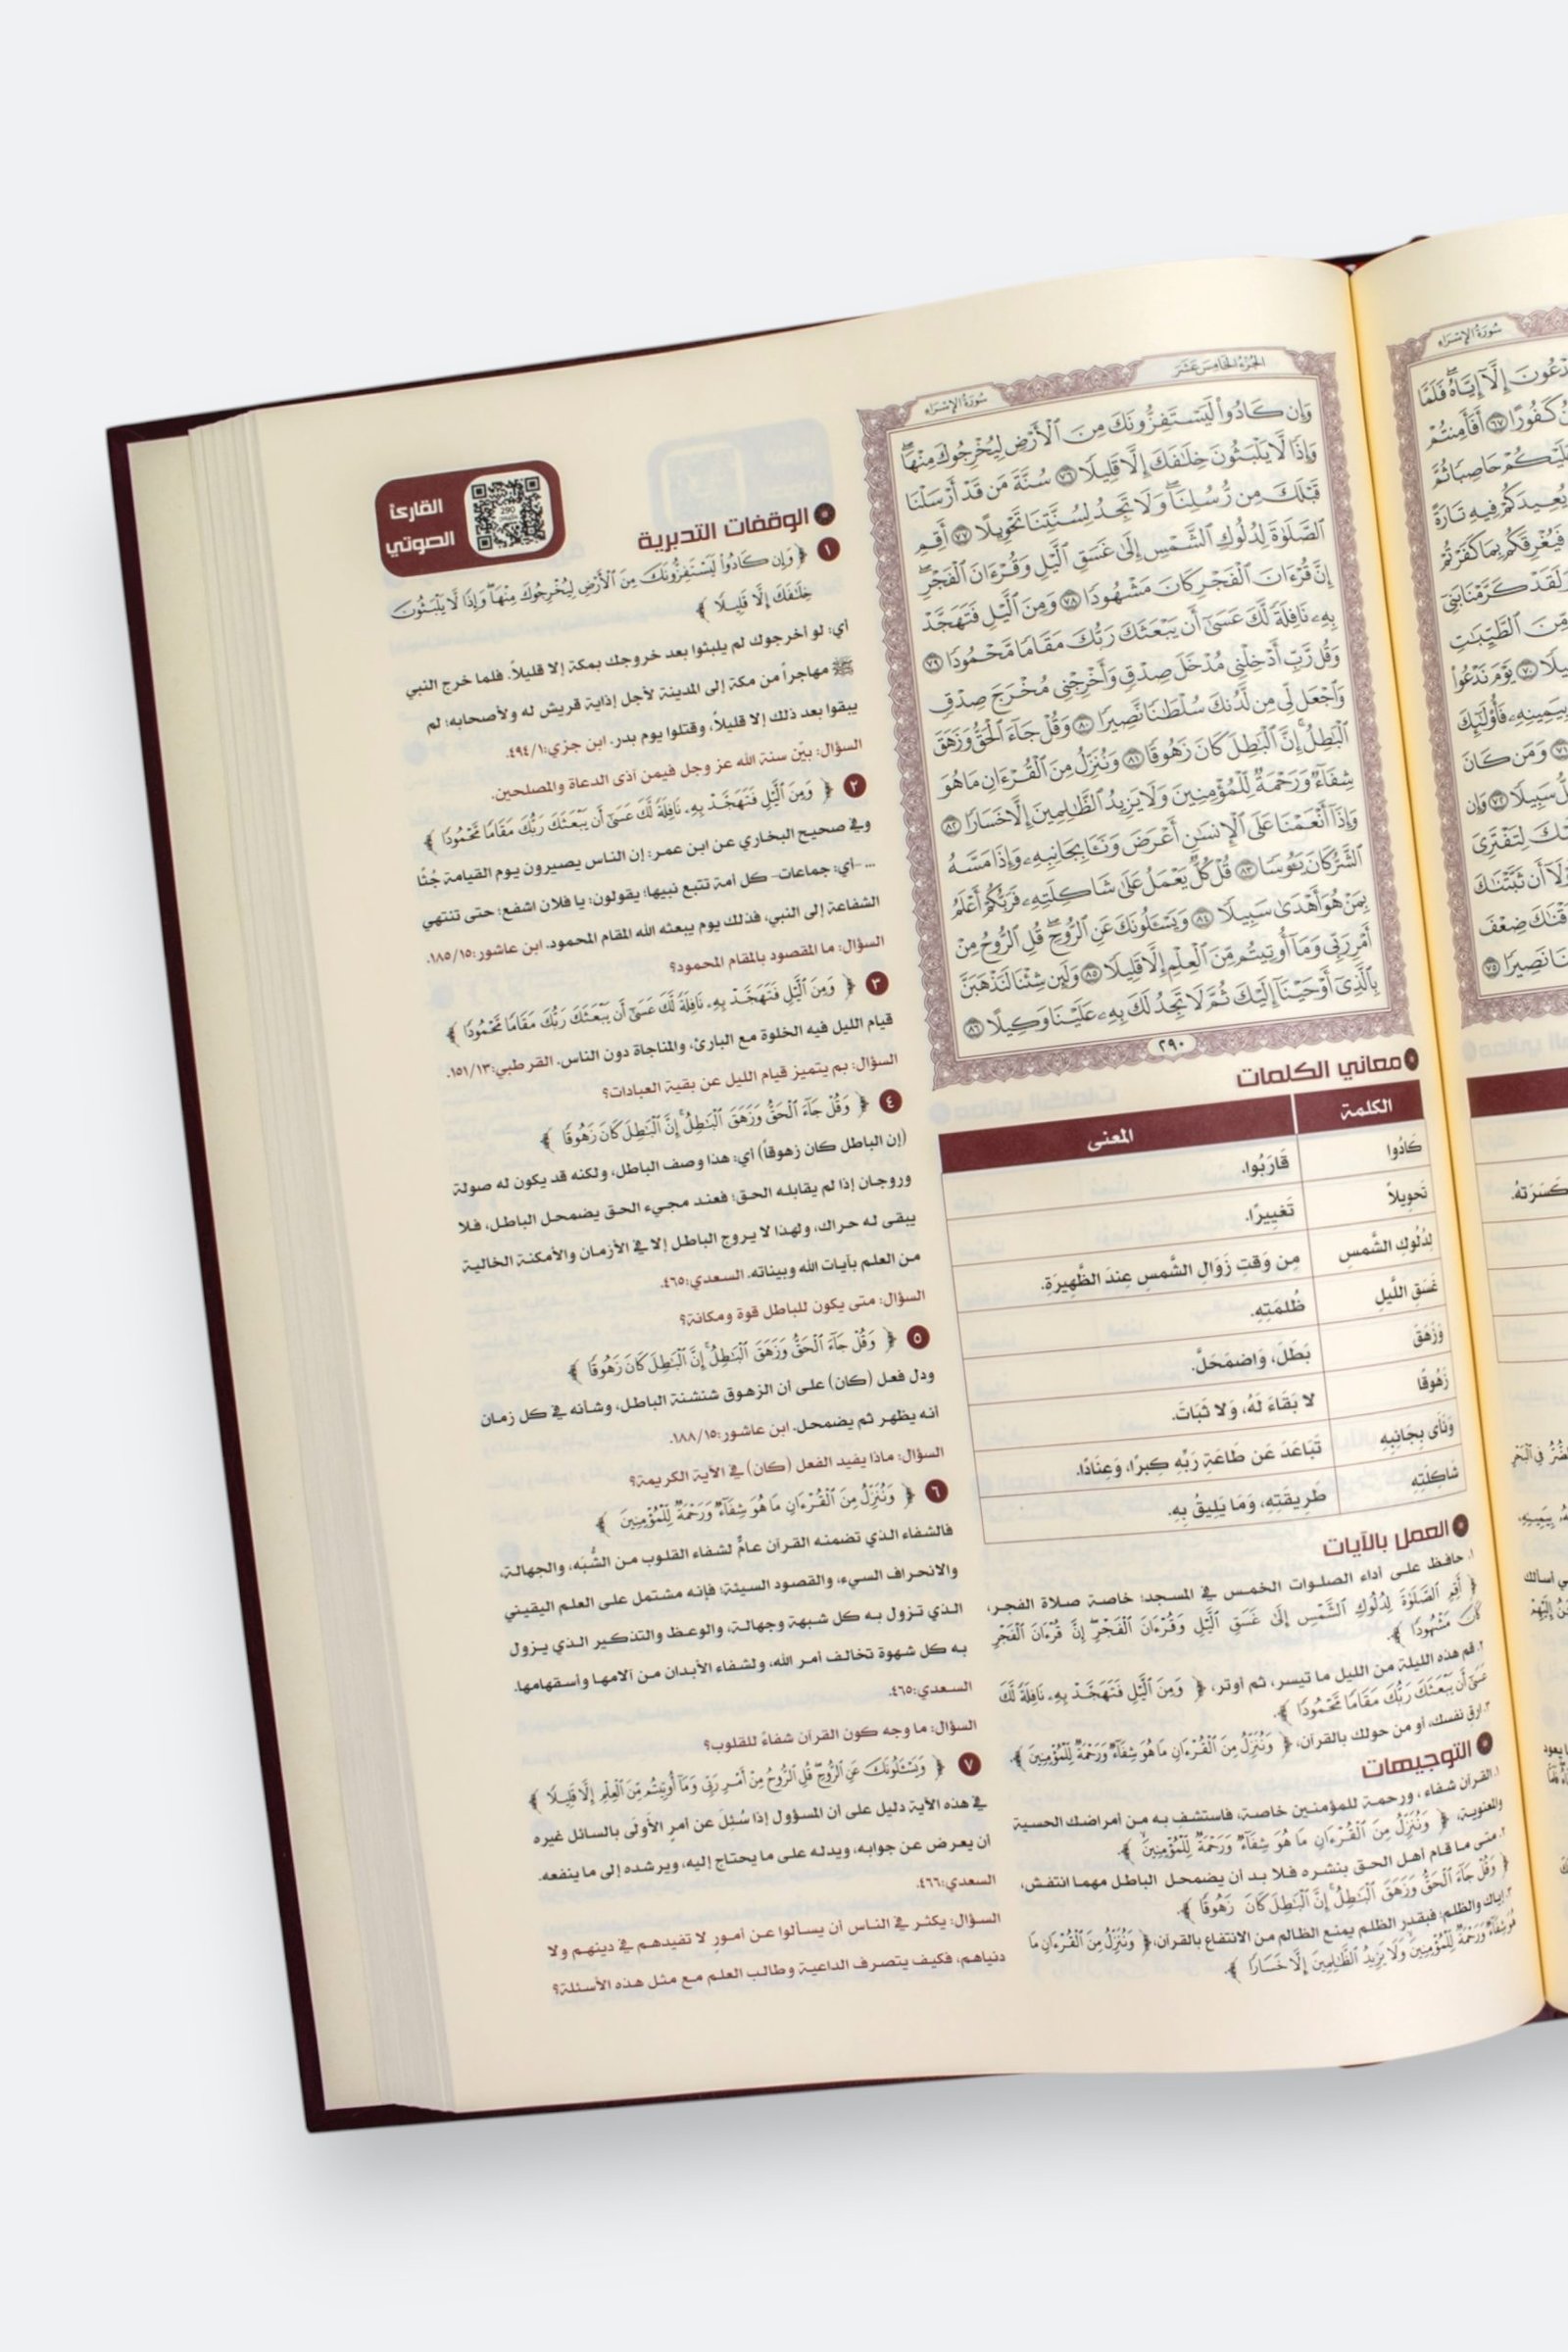 الجُزْءُ الخَامِسَ عَشَرَ
سُورَةُ الإِسْرَاءِ
وَإِن كَادُوا۟ لَيَسْتَفِزُّونَكَ مِنَ ٱلْأَرْضِ لِيُخْرِجُوكَ مِنْهَاۖ
وَإِذًا لَّا يَلْبَثُونَ خِلَٰفَكَ إِلَّا قَلِيلًا ٧٦ سُنَّةَ مَن قَدْ أَرْسَلْنَا
قَبْلَكَ مِن رُّسُلِنَاۖ وَلَا تَجِدُ لِسُنَّتِنَا تَحْوِيلًا ٧٧ أَقِمِ
ٱلصَّلَوٰةَ لِدُلُوكِ ٱلشَّمْسِ إِلَىٰ غَسَقِ ٱلَّيْلِ وَقُرْءَانَ ٱلْفَجْرِۖ
إِنَّ قُرْءَانَ ٱلْفَجْرِ كَانَ مَشْهُودًا ٧٨ وَمِنَ ٱلَّيْلِ فَتَهَجَّدْ
بِهِۦ نَافِلَةً لَّكَ عَسَىٰٓ أَن يَبْعَثَكَ رَبُّكَ مَقَامًا مَّحْمُودًا ٧٩
وَقُل رَّبِّ أَدْخِلْنِي مُدْخَلَ صِدْقٍ وَأَخْرِجْنِي مُخْرَجَ صِدْقٍ
وَٱجْعَل لِّي مِن لَّدُنكَ سُلْطَٰنًا نَّصِيرًا ٨٠ وَقُلْ جَآءَ ٱلْحَقُّ وَزَهَقَ
ٱلْبَٰطِلُۚ إِنَّ ٱلْبَٰطِلَ كَانَ زَهُوقًا ٨١ وَنُنَزِّلُ مِنَ ٱلْقُرْءَانِ مَا هُوَ
شِفَآءٌ وَرَحْمَةٌ لِّلْمُؤْمِنِينَ وَلَا يَزِيدُ ٱلظَّٰلِمِينَ إِلَّا خَسَارًا ٨٢
وَإِذَآ أَنْعَمْنَا عَلَى ٱلْإِنسَٰنِ أَعْرَضَ وَنَـَٔا بِجَانِبِهِۦ وَإِذَا مَسَّهُ
ٱلشَّرُّ كَانَ يَـُٔوسًا ٨٣ قُلْ كُلٌّ يَعْمَلُ عَلَىٰ شَاكِلَتِهِۦ فَرَبُّكُمْ أَعْلَمُ
بِمَنْ هُوَ أَهْدَىٰ سَبِيلًا ٨٤ وَيَسْـَٔلُونَكَ عَنِ ٱلرُّوحِۖ قُلِ ٱلرُّوحُ مِنْ
أَمْرِ رَبِّي وَمَآ أُوتِيتُم مِّنَ ٱلْعِلْمِ إِلَّا قَلِيلًا ٨٥ وَلَئِن شِئْنَا لَنَذْهَبَنَّ
بِٱلَّذِيٓ أَوْحَيْنَآ إِلَيْكَ ثُمَّ لَا تَجِدُ لَكَ بِهِۦ عَلَيْنَا وَكِيلًا ٨٦
٢٩٠
معاني الكلمات
الكلمة المعنى
كَادُوا قَارَبُوا.
تَحوِيلاً تَغيِيرًا.
لِدُلُوكِ الشَّمسِ مِن وَقتِ زَوَالِ الشَّمسِ عِندَ الظَّهِيرَةِ.
غَسَقِ اللَّيلِ ظُلمَتِهِ.
وَزَهَقَ بَطَلَ، وَاضمَحَلَّ.
زَهُوقًا لا بَقَاءَ لَهُ، وَلا ثَبَاتَ.
وَنَأَى بِجَانِبِهِ تَبَاعَدَ عَن طَاعَةِ رَبِّهِ كِبرًا، وَعِنَادًا.
شَاكِلَتِهِ طَرِيقَتِهِ، وَمَا يَلِيقُ بِهِ.
العمل بالآيات
١. حافظ على أداء الصلوات الخمس في المسجد؛ خاصة صلاة الفجر،
﴿ أَقِمِ ٱلصَّلَوٰةَ لِدُلُوكِ ٱلشَّمْسِ إِلَىٰ غَسَقِ ٱلَّيْلِ وَقُرْءَانَ ٱلْفَجْرِۖ إِنَّ قُرْءَانَ ٱلْفَجْرِ
كَانَ مَشْهُودًا ﴾.
٢. قم هذه الليلة من الليل ما تيسر، ثم أوتر، ﴿ وَمِنَ ٱلَّيْلِ فَتَهَجَّدْ بِهِۦ نَافِلَةً لَّكَ
عَسَىٰٓ أَن يَبْعَثَكَ رَبُّكَ مَقَامًا مَّحْمُودًا ﴾.
٣. ارقِ نفسك، أو من حولك بالقرآن، ﴿ وَنُنَزِّلُ مِنَ ٱلْقُرْءَانِ مَا هُوَ شِفَآءٌ وَرَحْمَةٌ لِّلْمُؤْمِنِينَ ﴾.
التوجيهات
١. القرآن شفاء، ورحمة للمؤمنين خاصة، فاستشفِ به من أمراضك الحسية
والمعنوية، ﴿ وَنُنَزِّلُ مِنَ ٱلْقُرْءَانِ مَا هُوَ شِفَآءٌ وَرَحْمَةٌ لِّلْمُؤْمِنِينَ ﴾.
٢. متى ما قام أهل الحق بنشره فلا بد أن يضمحل الباطل مهما انتفش،
﴿ وَقُلْ جَآءَ ٱلْحَقُّ وَزَهَقَ ٱلْبَٰطِلُۚ إِنَّ ٱلْبَٰطِلَ كَانَ زَهُوقًا ﴾.
٣. إياك والظلم؛ فبقدر الظلم يمنع الظالم من الانتفاع بالقرآن، ﴿ وَنُنَزِّلُ مِنَ ٱلْقُرْءَانِ مَا
هُوَ شِفَآءٌ وَرَحْمَةٌ لِّلْمُؤْمِنِينَ وَلَا يَزِيدُ ٱلظَّٰلِمِينَ إِلَّا خَسَارًا ﴾.
القارئ
الصوتي
290
الوقفات التدبرية
١ ﴿ وَإِن كَادُوا۟ لَيَسْتَفِزُّونَكَ مِنَ ٱلْأَرْضِ لِيُخْرِجُوكَ مِنْهَاۖ وَإِذًا لَّا يَلْبَثُونَ
خِلَٰفَكَ إِلَّا قَلِيلًا ﴾
أي: لو أخرجوك لم يلبثوا بعد خروجك بمكة إلا قليلاً. فلما خرج النبي
ﷺ مهاجراً من مكة إلى المدينة لأجل إذاية قريش له ولأصحابه؛ لم
يبقوا بعد ذلك إلا قليلاً، وقتلوا يوم بدر. ابن جزي:١/٤٩٤.
السؤال: بيّن سنة الله عز وجل فيمن آذى الدعاة والمصلحين.
٢ ﴿ وَمِنَ ٱلَّيْلِ فَتَهَجَّدْ بِهِۦ نَافِلَةً لَّكَ عَسَىٰٓ أَن يَبْعَثَكَ رَبُّكَ مَقَامًا مَّحْمُودًا ﴾
وفي صحيح البخاري عن ابن عمر: إن الناس يصيرون يوم القيامة جُثًا
... -أي: جماعات- كل أمة تتبع نبيها؛ يقولون: يا فلان اشفع؛ حتى تنتهي
الشفاعة إلى النبي، فذلك يوم يبعثه الله المقام المحمود. ابن عاشور:١٨٥/١٥.
السؤال: ما المقصود بالمقام المحمود؟
٣ ﴿ وَمِنَ ٱلَّيْلِ فَتَهَجَّدْ بِهِۦ نَافِلَةً لَّكَ عَسَىٰٓ أَن يَبْعَثَكَ رَبُّكَ مَقَامًا مَّحْمُودًا ﴾
قيام الليل فيه الخلوة مع البارئ، والمناجاة دون الناس. القرطبي:١٥١/١٣.
السؤال: بم يتميز قيام الليل عن بقية العبادات؟
٤ ﴿ وَقُلْ جَآءَ ٱلْحَقُّ وَزَهَقَ ٱلْبَٰطِلُۚ إِنَّ ٱلْبَٰطِلَ كَانَ زَهُوقًا ﴾
(إن الباطل كان زهوقاً) أي: هذا وصف الباطل، ولكنه قد يكون له صولة
وروجان إذا لم يقابله الحق؛ فعند مجيء الحق يضمحل الباطل، فلا
يبقى له حراك، ولهذا لا يروج الباطل إلا في الأزمان والأمكنة الخالية
من العلم بآيات الله وبيناته. السعدي:٤٦٥.
السؤال: متى يكون للباطل قوة ومكانة؟
٥ ﴿ وَقُلْ جَآءَ ٱلْحَقُّ وَزَهَقَ ٱلْبَٰطِلُۚ إِنَّ ٱلْبَٰطِلَ كَانَ زَهُوقًا ﴾
ودل فعل (كان) على أن الزهوق شنشنة الباطل، وشأنه في كل زمان
أنه يظهر ثم يضمحل. ابن عاشور:١٨٨/١٥.
السؤال: ماذا يفيد الفعل (كان) في الآية الكريمة؟
٦ ﴿ وَنُنَزِّلُ مِنَ ٱلْقُرْءَانِ مَا هُوَ شِفَآءٌ وَرَحْمَةٌ لِّلْمُؤْمِنِينَ ﴾
فالشفاء الذي تضمنه القرآن عامٌّ لشفاء القلوب من الشُّبَه، والجهالة،
والانحراف السيء، والقصود السيئة؛ فإنه مشتمل على العلم اليقيني
الذي تزول به كل شبهة وجهالة، والوعظ والتذكير الذي يزول
به كل شهوة تخالف أمر الله، ولشفاء الأبدان من آلامها وأسقامها.
السعدي:٤٦٥.
السؤال: ما وجه كون القرآن شفاءً للقلوب؟
٧ ﴿ وَيَسْـَٔلُونَكَ عَنِ ٱلرُّوحِۖ قُلِ ٱلرُّوحُ مِنْ أَمْرِ رَبِّي وَمَآ أُوتِيتُم مِّنَ ٱلْعِلْمِ إِلَّا قَلِيلًا ﴾
في هذه الآية دليل على أن المسؤول إذا سُئِلَ عن أمرٍ الأَولَى بالسائل غيره
أن يعرض عن جوابه، ويدله على ما يحتاج إليه، ويرشده إلى ما ينفعه.
السعدي:٤٦٦.
السؤال: يكثر في الناس أن يسألوا عن أمورٍ لا تفيدهم في دينهم ولا
دنياهم، فكيف يتصرف الداعية وطالب العلم مع مثل هذه الأسئلة؟